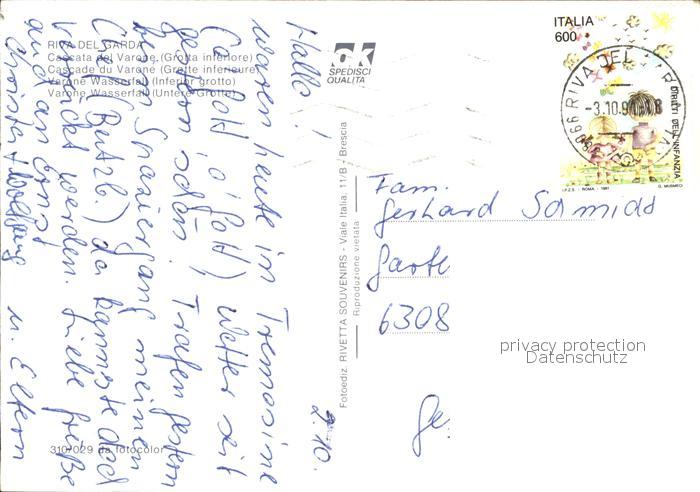 RIVA DEL GARDA
Cascata del Varone (Grotta inferiore)
Cascade du Varone (Grotte inferieure)
Varone Wasserfall (Inferior grotto)
Varone Wasserfall (Untere Grotte)
SPEDISCI
QUALITÀ
ITALIA
600
DIRITTI DELL'INFANZIA
I.P.Z.S. - ROMA - 1991
RIVA DEL
-3.10.91
2.10.
Hallo!
waren heute in Tremosine
Wetter seit
gestern schön! Trafen gestern
beim Spaziergang meinen
Chef (Butzb.) da kannste doch
verrückt werden. Liebe Grüße
auch an
Christa + Wolfgang u. Eltern
Fotoediz. RIVETTA SOUVENIRS - Viale Italia, 11/B - Brescia
Riproduzione vietata
Fam.
Gerhard Schmidt
6308
privacy protection
Datenschutz
310/029 da fotocolor